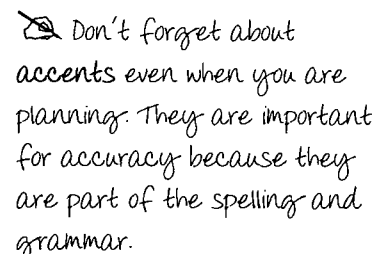 Don't forget about
accents even when you are
planning. They are important
for accuracy because they
are part of the spelling and
grammar.